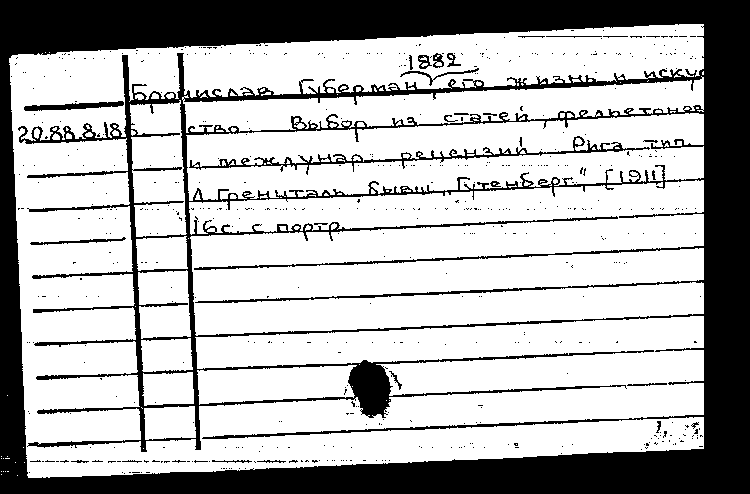 1882
Бронислав Губерман, его жизнь и искус
20.88.8.186. ство. Выбор из статей, фельетонов
и междунар. рецензий. Рига, тип.
Л. Гренцталь, бывш. „Гутенберг", [1911]
16с. с портр.